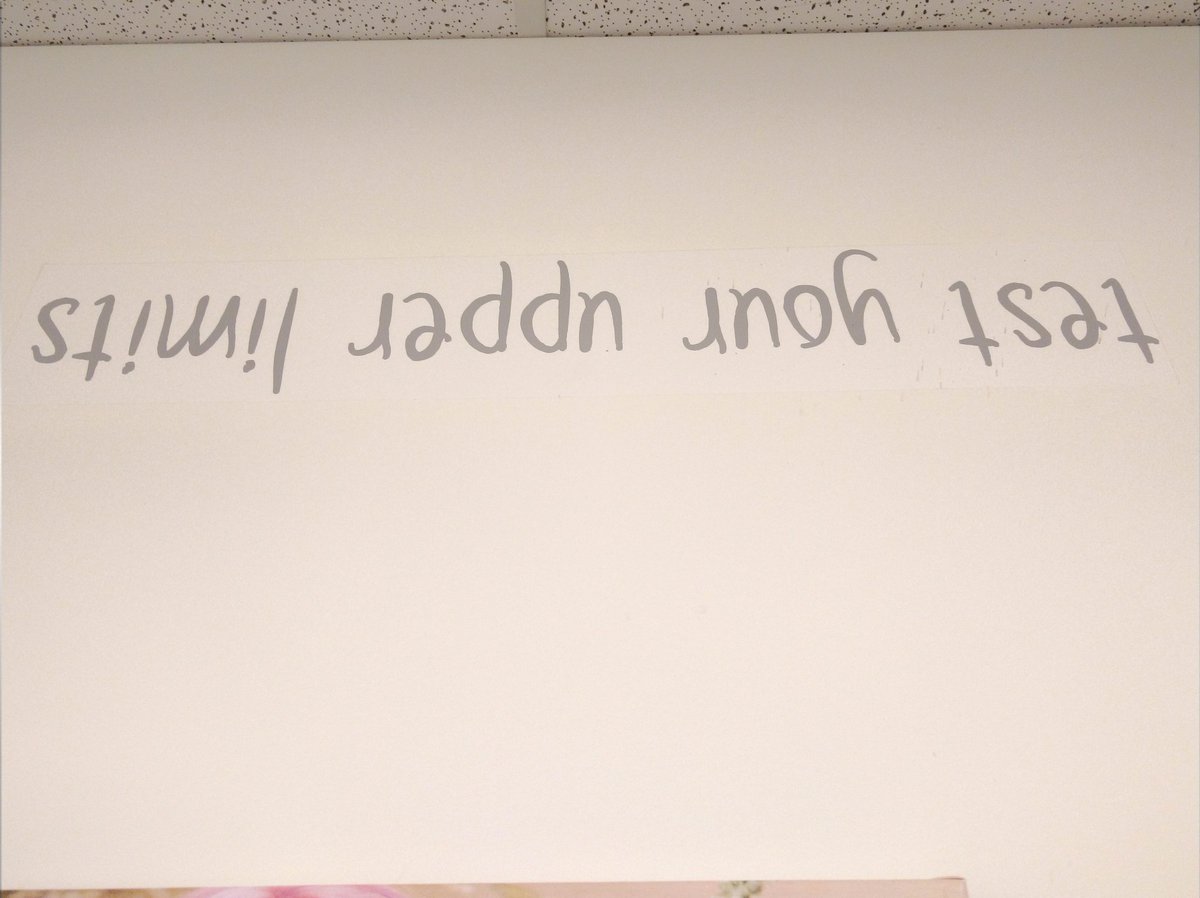 test your upper limits